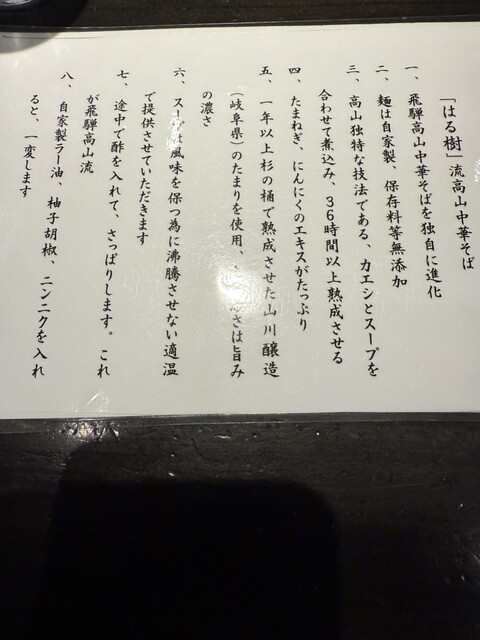 「はる樹」流高山中華そば
一、飛騨高山中華そばを独自に進化
二、麺は自家製、保存料等無添加
三、高山独特な技法である、カエシとスープを
合わせて煮込み、36時間以上熟成させる
四、たまねぎ、にんにくのエキスがたっぷり
五、一年以上杉の桶で熟成させた山川醸造
(岐阜県)のたまりを使用、さは旨み
の濃さ
六、スープは風味を保つ為に沸騰させない適温
で提供させていただきます
七、途中で酢を入れて、さっぱりします。これ
が飛騨高山流
八、自家製ラー油、柚子胡椒、ニンニクを入れ
ると、一変します